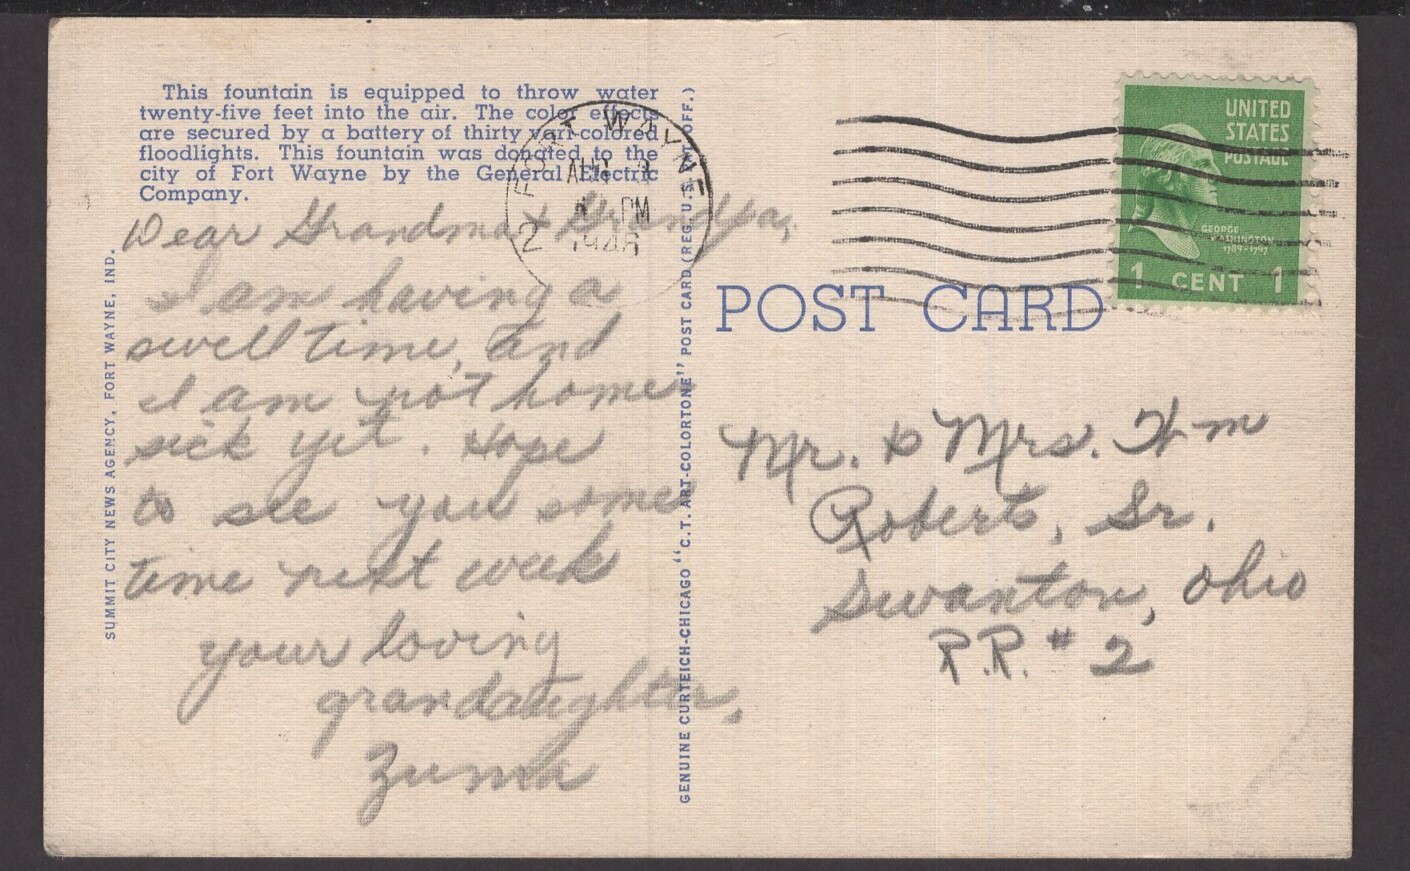 This fountain is equipped to throw water
twenty-five feet into the air. The color effects
are secured by a battery of thirty vari-colored
floodlights. This fountain was donated to the
city of Fort Wayne by the General Electric
Company.
Dear Grandma & Grandpa,
I am having a
swell time, and
I am not home
sick yet. Hope
to see you some
time next week
your loving
grandaughter,
Zuma
SUMMIT CITY NEWS AGENCY, FORT WAYNE, IND.
GENUINE CURTEICH-CHICAGO "C.T. ART-COLORTONE" POST CARD (REG. U.S. PAT. OFF.)
FORT WAYNE
2
PM
1946
UNITED
STATES
POSTAGE
GEORGE
WASHINGTON
1789-1797
1 CENT 1
POST CARD
Mr. & Mrs. Wm
Roberts, Sr.
Swanton, Ohio
R.R. # 2